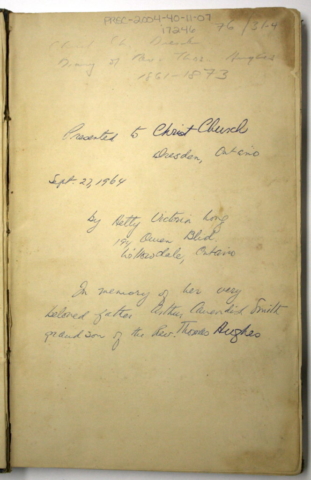 PRCC-2004-40-11-07
17246
96/31-4
Diary of Rev. Thos. Hughes
1861-1873
Presented to Christ Church
Dresden, Ontario
Sept. 27, 1964
By Betty Victoria Long
194 Owen Blvd.
Willowdale, Ontario
In memory of her very
beloved father Arthur Smith
grandson of the Rev. Thomas Hughes